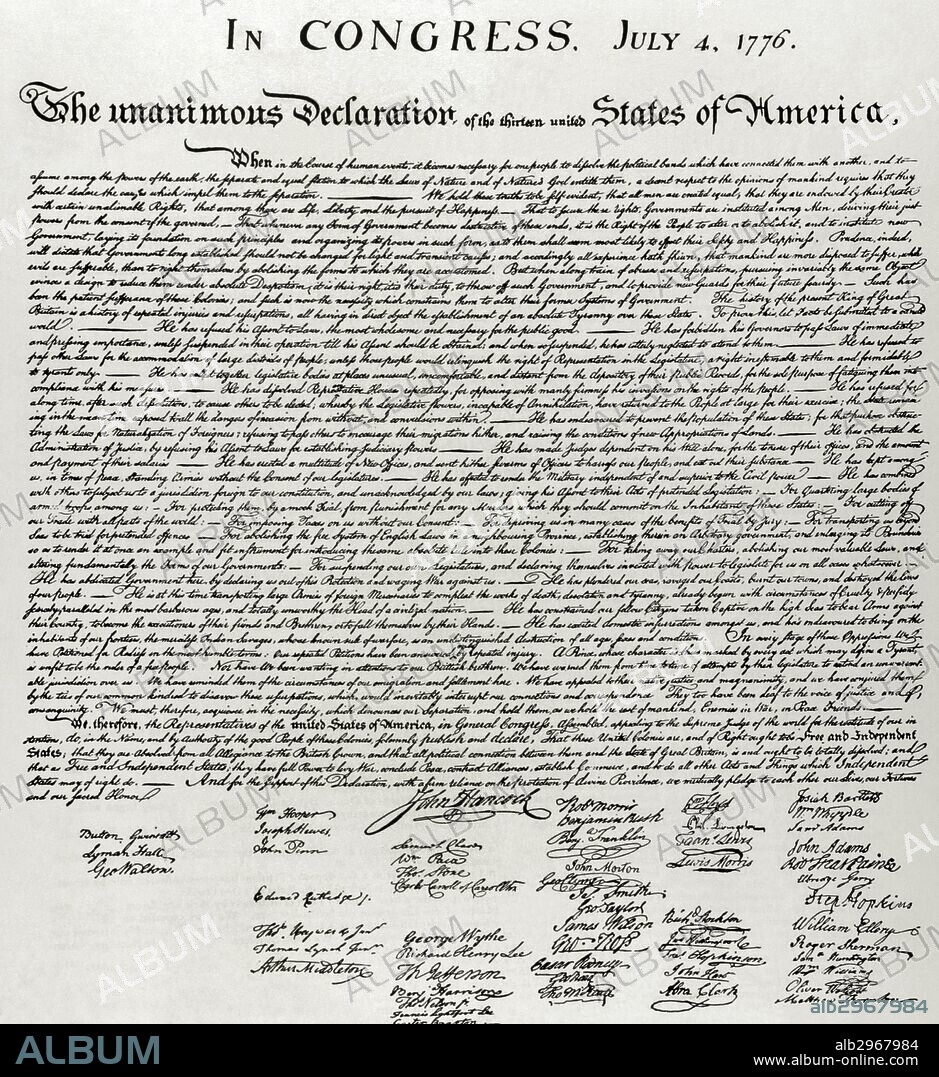 IN CONGRESS. JULY 4, 1776.
The unanimous Declaration of the thirteen united States of America,
When in the Course of human events, it becomes necessary for one people to dissolve the political bands which have connected them with another, and to
assume among the powers of the earth, the separate and equal station to which the Laws of Nature and of Nature's God entitle them, a decent respect to the opinions of mankind requires that they
should declare the causes which impel them to the separation. — We hold these truths to be self-evident, that all men are created equal, that they are endowed by their Creator
with certain unalienable Rights, that among these are Life, Liberty and the pursuit of Happiness. — That to secure these rights, Governments are instituted among Men, deriving their just
powers from the consent of the governed, — That whenever any Form of Government becomes destructive of these ends, it is the Right of the People to alter or to abolish it, and to institute new
Government, laying its foundation on such principles and organizing its powers in such form, as to them shall seem most likely to effect their Safety and Happiness. Prudence, indeed,
will dictate that Governments long established should not be changed for light and transient causes; and accordingly all experience hath shewn, that mankind are more disposed to suffer, while
evils are sufferable, than to right themselves by abolishing the forms to which they are accustomed. But when a long train of abuses and usurpations, pursuing invariably the same Object
evinces a design to reduce them under absolute Despotism, it is their right, it is their duty, to throw off such Government, and to provide new Guards for their future security. — Such has
been the patient sufferance of these Colonies; and such is now the necessity which constrains them to alter their former Systems of Government. The history of the present King of Great
Britain is a history of repeated injuries and usurpations, all having in direct object the establishment of an absolute Tyranny over these States. To prove this, let Facts be submitted to a candid
world. — He has refused his Assent to Laws, the most wholesome and necessary for the public good. — He has forbidden his Governors to pass Laws of immediate
and pressing importance, unless suspended in their operation till his Assent should be obtained; and when so suspended, he has utterly neglected to attend to them. — He has refused to
pass other Laws for the accommodation of large districts of people, unless those people would relinquish the right of Representation in the Legislature, a right inestimable to them and formidable
to tyrants only. — He has called together legislative bodies at places unusual, uncomfortable, and distant from the depository of their public Records, for the sole purpose of fatiguing them into
compliance with his measures. — He has dissolved Representative Houses repeatedly, for opposing with manly firmness his invasions on the rights of the people. — He has refused for
a long time, after such dissolutions, to cause others to be elected; whereby the Legislative powers, incapable of Annihilation, have returned to the People at large for their exercise; the State remain-
ing in the mean time exposed to all the dangers of invasion from without, and convulsions within. — He has endeavoured to prevent the population of these States; for that purpose obstruc-
ting the Laws for Naturalization of Foreigners; refusing to pass others to encourage their migrations hither, and raising the conditions of new Appropriations of Lands. — He has obstructed the
Administration of Justice, by refusing his Assent to Laws for establishing Judiciary powers. — He has made Judges dependent on his Will alone, for the tenure of their offices, and the amount
and payment of their salaries. — He has erected a multitude of New Offices, and sent hither swarms of Officers to harrass our people, and eat out their substance. — He has kept among
us, in times of peace, Standing Armies without the Consent of our legislatures. — He has affected to render the Military independent of and superior to the Civil power. — He has combined
with others to subject us to a jurisdiction foreign to our constitution, and unacknowledged by our laws; giving his Assent to their Acts of pretended Legislation: — For Quartering large bodies of
armed troops among us: — For protecting them, by a mock Trial, from punishment for any Murders which they should commit on the Inhabitants of these States: — For cutting off
our Trade with all parts of the world: — For imposing Taxes on us without our Consent: — For depriving us in many cases, of the benefits of Trial by Jury: — For transporting us beyond
Seas to be tried for pretended offences — For abolishing the free System of English Laws in a neighbouring Province, establishing therein an Arbitrary government, and enlarging its Boundaries
so as to render it at once an example and fit instrument for introducing the same absolute rule into these Colonies: — For taking away our Charters, abolishing our most valuable Laws, and
altering fundamentally the Forms of our Governments: — For suspending our own Legislatures, and declaring themselves invested with power to legislate for us in all cases whatsoever. —
He has abdicated Government here, by declaring us out of his Protection and waging War against us. — He has plundered our seas, ravaged our Coasts, burnt our towns, and destroyed the lives
of our people. — He is at this time transporting large Armies of foreign Mercenaries to compleat the works of death, desolation and tyranny, already begun with circumstances of Cruelty & perfidy
scarcely paralleled in the most barbarous ages, and totally unworthy the Head of a civilized nation. — He has constrained our fellow Citizens taken Captive on the high Seas to bear Arms against
their Country, to become the executioners of their friends and Brethren, or to fall themselves by their Hands. — He has excited domestic insurrections amongst us, and has endeavoured to bring on the
inhabitants of our frontiers, the merciless Indian Savages, whose known rule of warfare, is an undistinguished destruction of all ages, sexes and conditions. In every stage of these Oppressions We
have Petitioned for Redress in the most humble terms: Our repeated Petitions have been answered only by repeated injury. A Prince, whose character is thus marked by every act which may define a Tyrant,
is unfit to be the ruler of a free people. Nor have We been wanting in attentions to our Brittish brethren. We have warned them from time to time of attempts by their legislature to extend an unwarrant-
able jurisdiction over us. We have reminded them of the circumstances of our emigration and settlement here. We have appealed to their native justice and magnanimity, and we have conjured them
by the ties of our common kindred to disavow these usurpations, which, would inevitably interrupt our connections and correspondence. They too have been deaf to the voice of justice and of
consanguinity. We must, therefore, acquiesce in the necessity, which denounces our Separation, and hold them, as we hold the rest of mankind, Enemies in War, in Peace Friends. —
We, therefore, the Representatives of the united States of America, in General Congress, Assembled, appealing to the Supreme Judge of the world for the rectitude of our in
tentions, do, in the Name, and by Authority of the good People of these Colonies, solemnly publish and declare, That these United Colonies are, and of Right ought to be Free and Independent
States; that they are Absolved from all Allegiance to the British Crown, and that all political connection between them and the State of Great Britain, is and ought to be totally dissolved; and
that as Free and Independent States, they have full Power to levy War, conclude Peace, contract Alliances, establish Commerce, and to do all other Acts and Things which Independent
States may of right do. — And for the support of this Declaration, with a firm reliance on the protection of divine Providence, we mutually pledge to each other our Lives, our Fortunes
and our sacred Honor.
John Hancock
Button Gwinnett
Lyman Hall
Geo Walton.
Wm Hooper
Joseph Hewes,
John Penn
Edward Rutledge /.
Thos Heyward Junr.
Thomas Lynch Junr.
Arthur Middleton
Samuel Chase
Wm Paca
Thos Stone
Charles Carroll of Carrollton
George Wythe
Richard Henry Lee
Th Jefferson
Benj Harrison
Thos Nelson jr.
Francis Lightfoot Lee
Carter Braxton
Robt Morris
Benjamin Rush
Benj. Franklin
John Morton
Geo Clymer
Jas. Smith
Geo. Taylor
James Wilson
Geo. Ross
Caesar Rodney
Geo Read
Tho M:Kean
Wm Floyd
Phil. Livingston
Frans. Lewis
Lewis Morris
Richd. Stockton
Jno Witherspoon
Fras. Hopkinson
John Hart
Abra Clark
Josiah Bartlett
Wm Whipple
Saml Adams
John Adams
Robt Treat Paine
Elbridge Gerry
Step. Hopkins
William Ellery
Roger Sherman
Saml Huntington
Wm Williams
Oliver Wolcott
Matthew Thornton
alb2967984
ALBUM
alb2967984
www.album-online.com